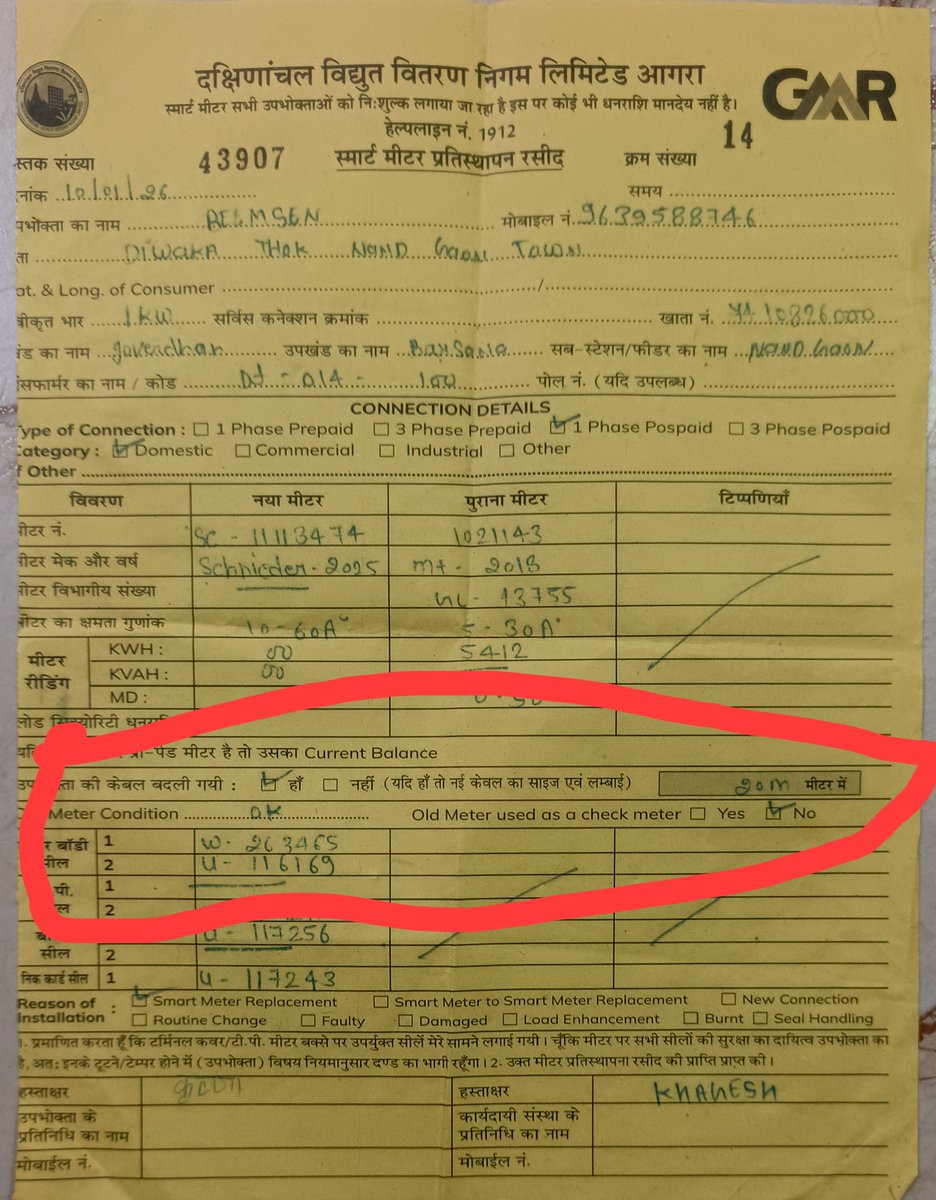 दक्षिणांचल विद्युत वितरण निगम लिमिटेड आगरा
GMR
स्मार्ट मीटर सभी उपभोक्ताओं को निःशुल्क लगाया जा रहा है इस पर कोई भी धनराशि मानदेय नहीं है।
हेल्पलाइन नं. 1912
स्तक संख्या 43907 स्मार्ट मीटर प्रतिस्थापन रसीद क्रम संख्या 14
नांक 10/01/26 समय
पभोक्ता का नाम मोबाइल नं. 9639588746
ता DIWAKA THOK NAND GAON TOWN
at. & Long. of Consumer /
वीकृत भार 1KW सर्विस कनेक्शन क्रमांक खाता नं.
ंड का नाम goverdhan उपखंड का नाम सब-स्टेशन/फीडर का नाम NAND GAON
ंसफार्मर का नाम / कोड पोल नं. (यदि उपलब्ध)
CONNECTION DETAILS
Type of Connection : 1 Phase Prepaid 3 Phase Prepaid 1 Phase Pospaid 3 Phase Pospaid
Category : Domestic Commercial Industrial Other
f Other
विवरण नया मीटर पुराना मीटर टिप्पणियाँ
मीटर नं. SC - 11113474 1021143
मीटर मेक और वर्ष Schnieder - 2025 mt - 2013
मीटर विभागीय संख्या 13755
मीटर का क्षमता गुणांक 10 - 60A 5 - 30A
मीटर रीडिंग
KWH : 00 5412
KVAH : 00
MD :
लोड सिक्योरिटी धनराशि
प्री-पेड मीटर है तो उसका Current Balance
उपभोक्ता की केबल बदली गयी : हाँ नहीं (यदि हाँ तो नई केवल का साइज एवं लम्बाई) 20m मीटर में
Meter Condition O.K Old Meter used as a check meter Yes No
र बॉडी सील 1 W - 263465
2 U - 116169
पी. 1
ल 2
U - 117256
सील 2
निक कार्ड सील 1 U - 117243
Reason of Installation : Smart Meter Replacement Smart Meter to Smart Meter Replacement New Connection
Routine Change Faulty Damaged Load Enhancement Burnt Seal Handling
1. प्रमाणित करता हूँ कि टर्मिनल कवर/टी.पी. मीटर बक्से पर उपर्युक्त सीलें मेरे सामने लगाई गयी। चूँकि मीटर पर सभी सीलों की सुरक्षा का दायित्व उपभोक्ता का
है, अतः इनके टूटने/टेम्पर होने में (उपभोक्ता) विषय नियमानुसार दण्ड का भागी रहूँगा। 2. उक्त मीटर प्रतिस्थापना रसीद की प्राप्ति प्राप्त की।
हस्ताक्षर हस्ताक्षर KHAHESH
उपभोक्ता के प्रतिनिधि का नाम कार्यदायी संस्था के प्रतिनिधि का नाम
मोबाईल नं. मोबाईल नं.